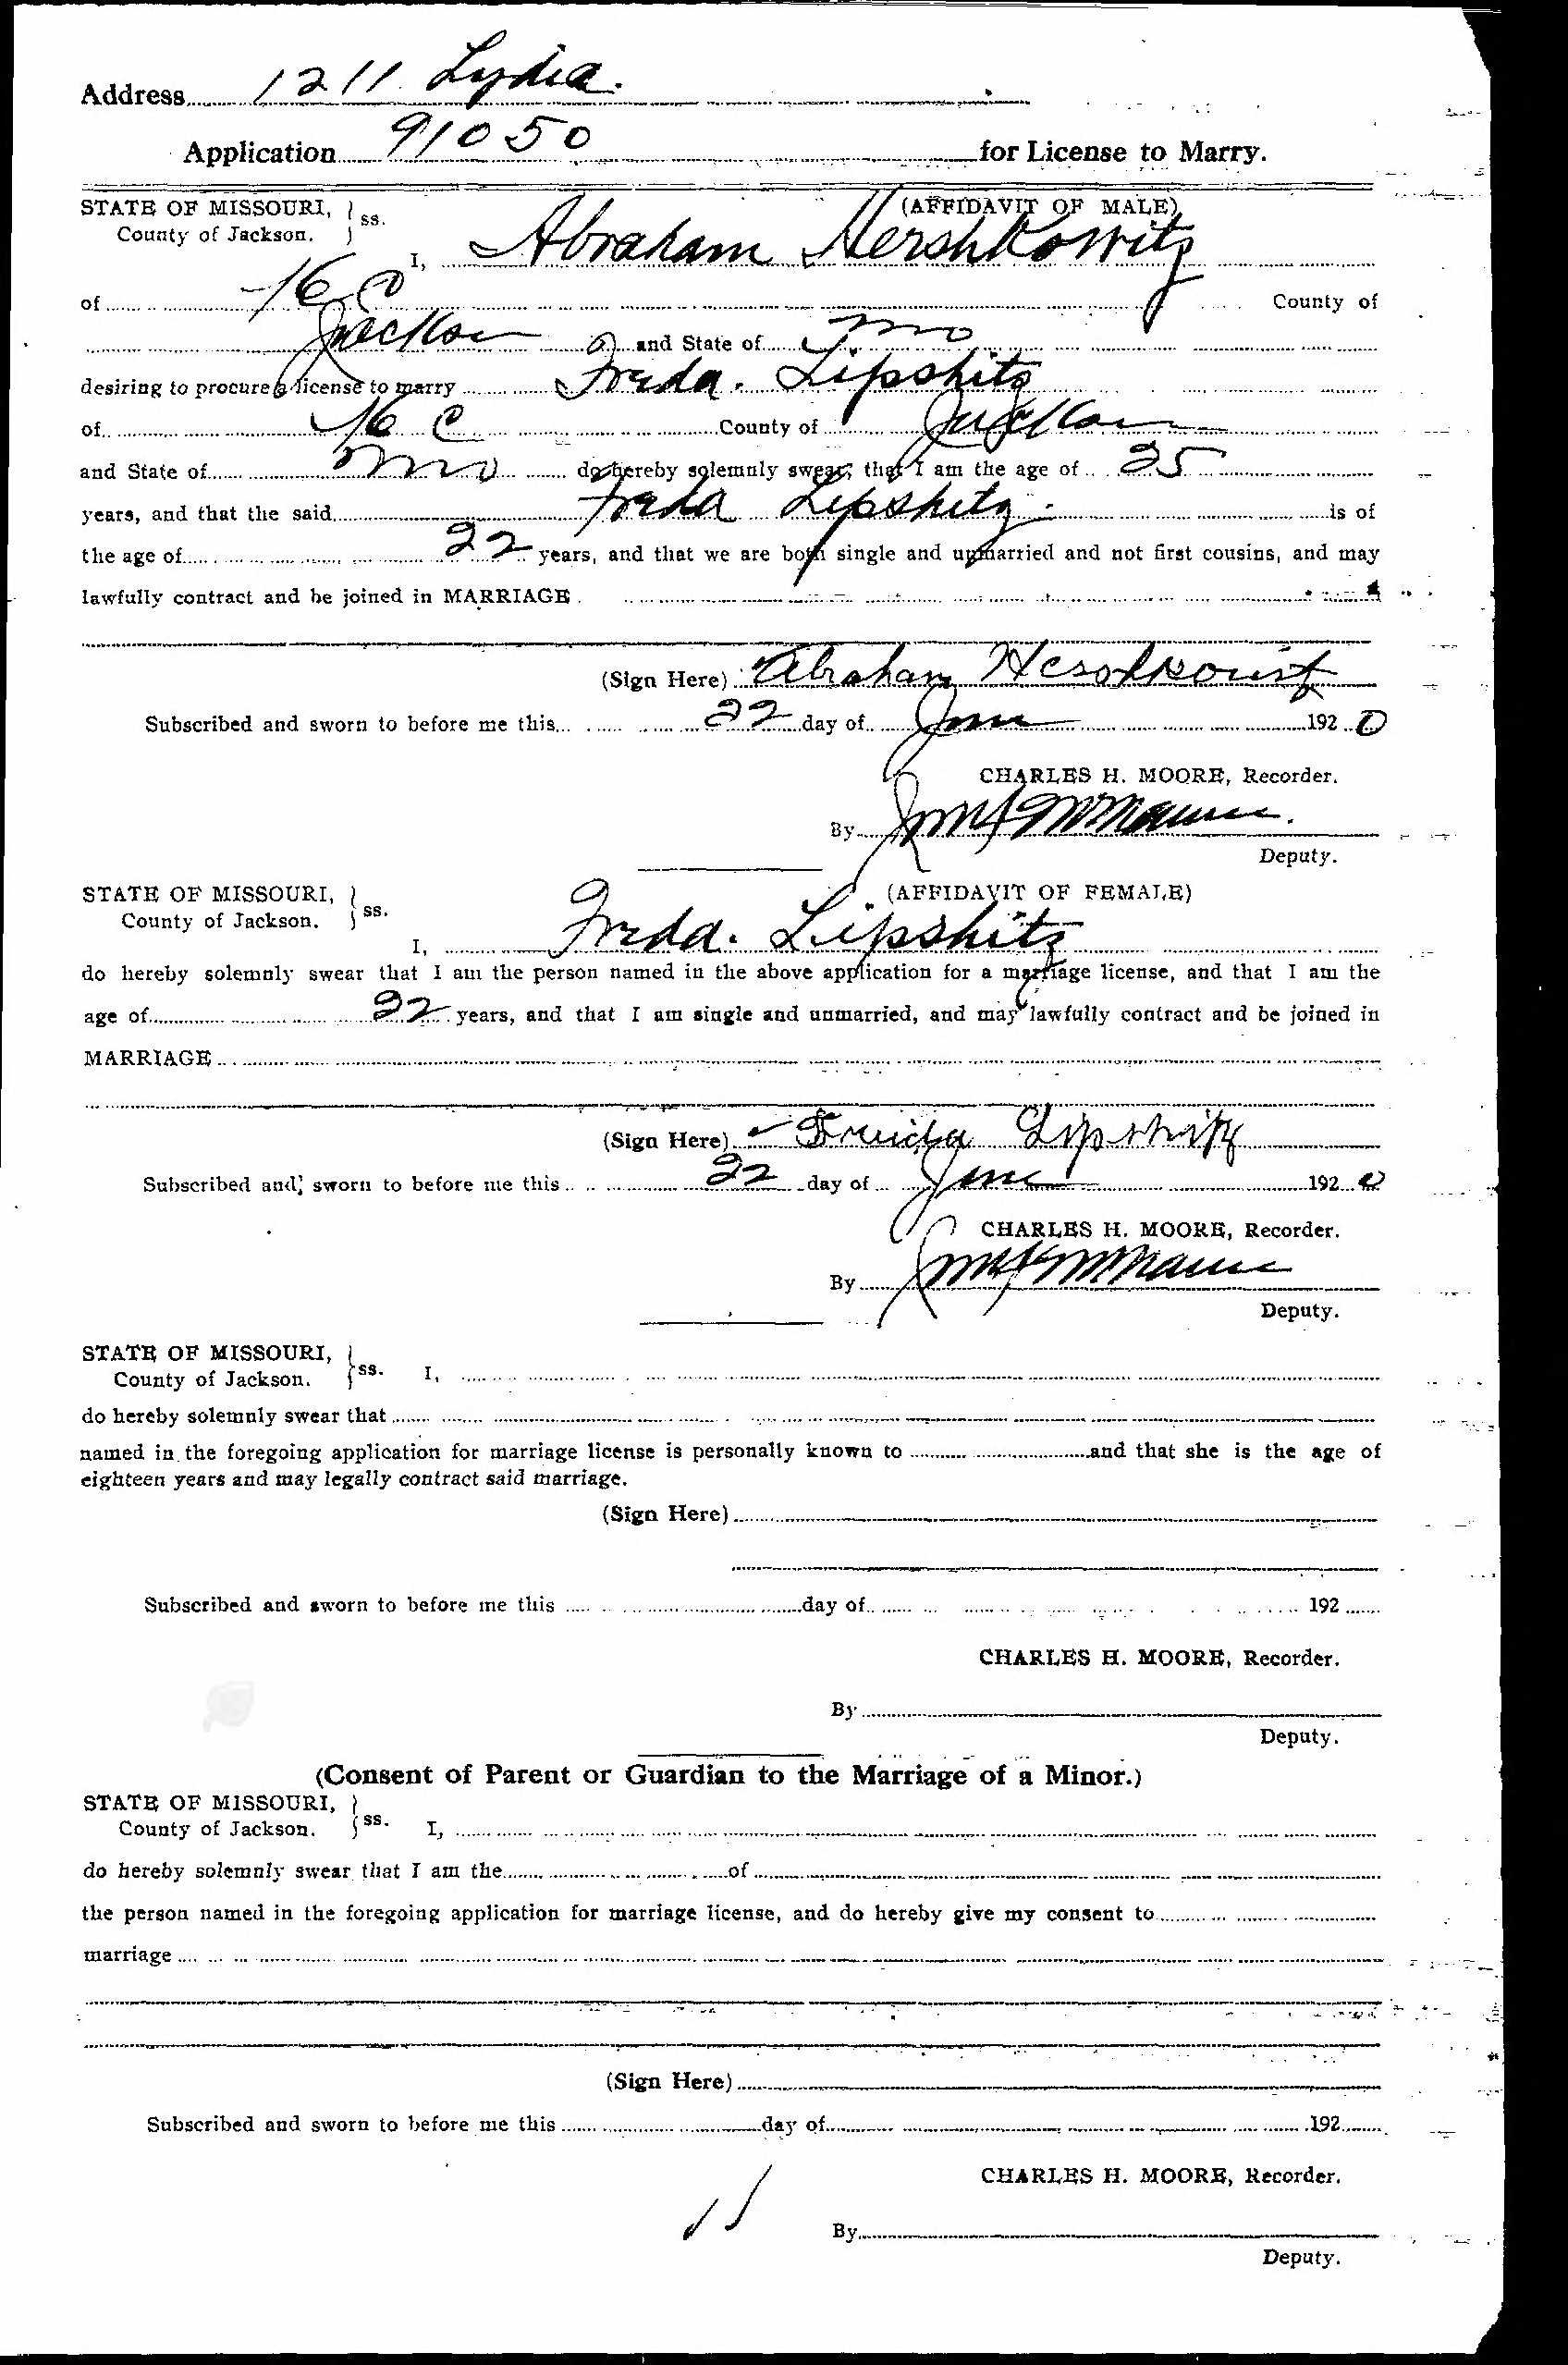 Address 1211 Lydia.
Application 91050 for License to Marry.
STATE OF MISSOURI, } ss. (AFFIDAVIT OF MALE)
County of Jackson.
I, Abraham Hershkowitz
of K C County of
Jackson and State of Mo
desiring to procure a license to marry Freda. Lipshitz
of K C County of Jackson
and State of Mo do hereby solemnly swear, that I am the age of 25
years, and that the said Freda Lipshitz. is of
the age of 22 years, and that we are both single and unmarried and not first cousins, and may
lawfully contract and be joined in MARRIAGE.
(Sign Here) Abraham
Subscribed and sworn to before me this 22 day of June 1920
CHARLES H. MOORE, Recorder.
By
Deputy.
STATE OF MISSOURI, } ss. (AFFIDAVIT OF FEMALE)
County of Jackson.
I, Freda. Lipshitz
do hereby solemnly swear that I am the person named in the above application for a marriage license, and that I am the
age of 22 years, and that I am single and unmarried, and may lawfully contract and be joined in
MARRIAGE
(Sign Here) Freida Lipshitz
Subscribed and sworn to before me this 22 day of June 1920
CHARLES H. MOORE, Recorder.
By
Deputy.
STATE OF MISSOURI, } ss. I,
County of Jackson.
do hereby solemnly swear that
named in the foregoing application for marriage license is personally known to and that she is the age of
eighteen years and may legally contract said marriage.
(Sign Here)
Subscribed and sworn to before me this day of 192
CHARLES H. MOORE, Recorder.
By
Deputy.
(Consent of Parent or Guardian to the Marriage of a Minor.)
STATE OF MISSOURI, } ss. I,
County of Jackson.
do hereby solemnly swear that I am the of
the person named in the foregoing application for marriage license, and do hereby give my consent to
marriage
(Sign Here)
Subscribed and sworn to before me this day of 192
CHARLES H. MOORE, Recorder.
By
Deputy.